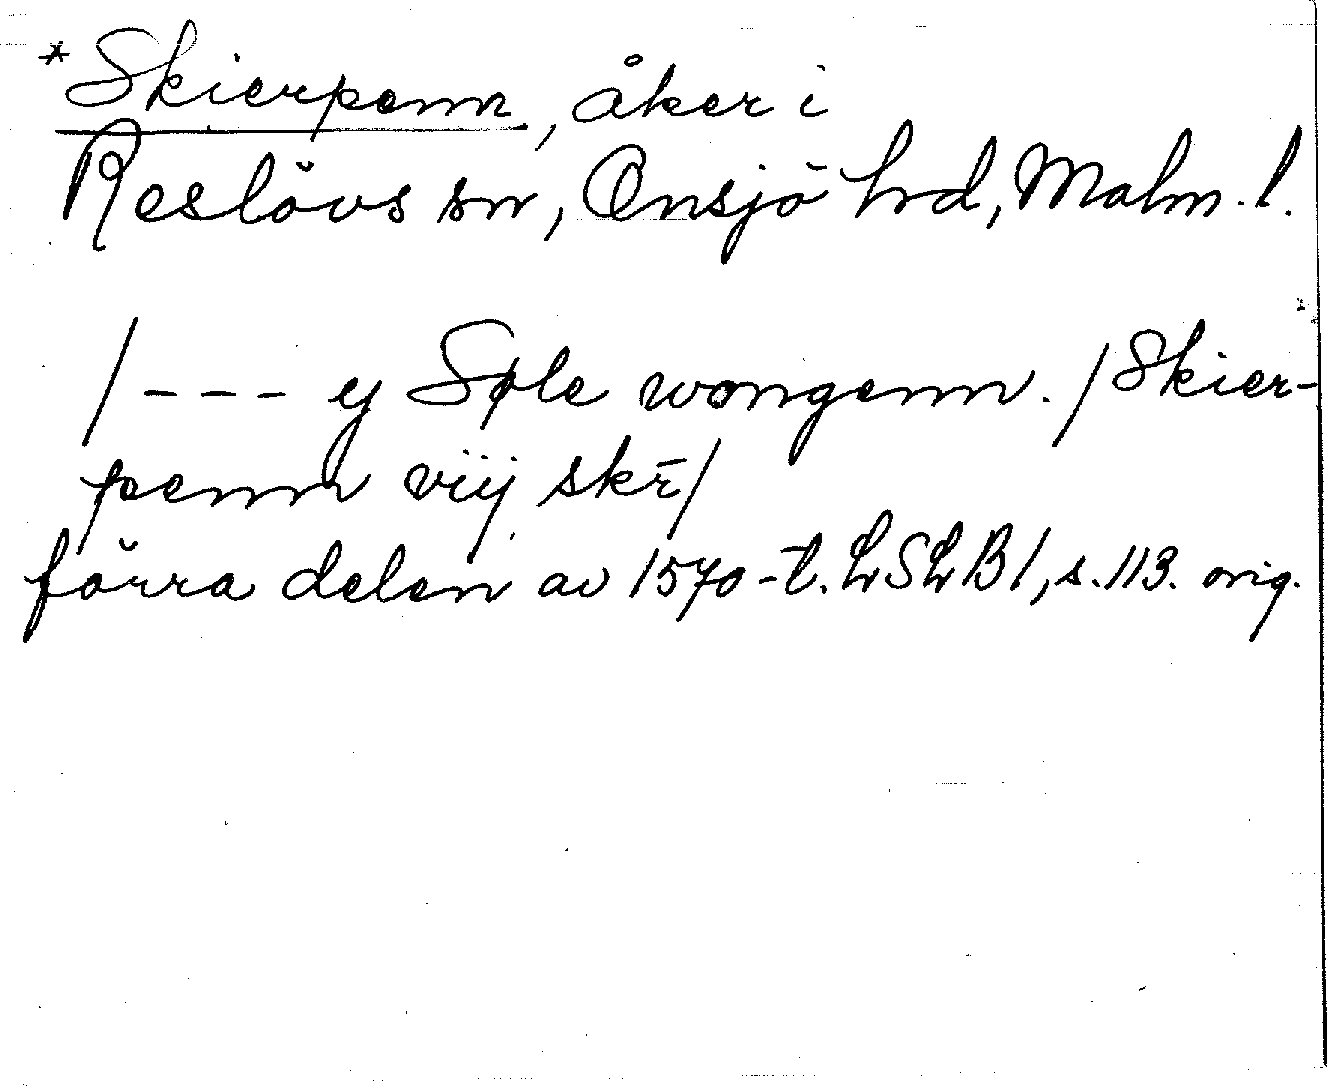 *Skierpenn, åker i
Reslövs sn, Onsjö hd, Malm. l.
/--- ej Søle wongenn. /Skier-
penn vijj skr̄/
förra delen av 1570-t. LSLB1, s. 113. orig.